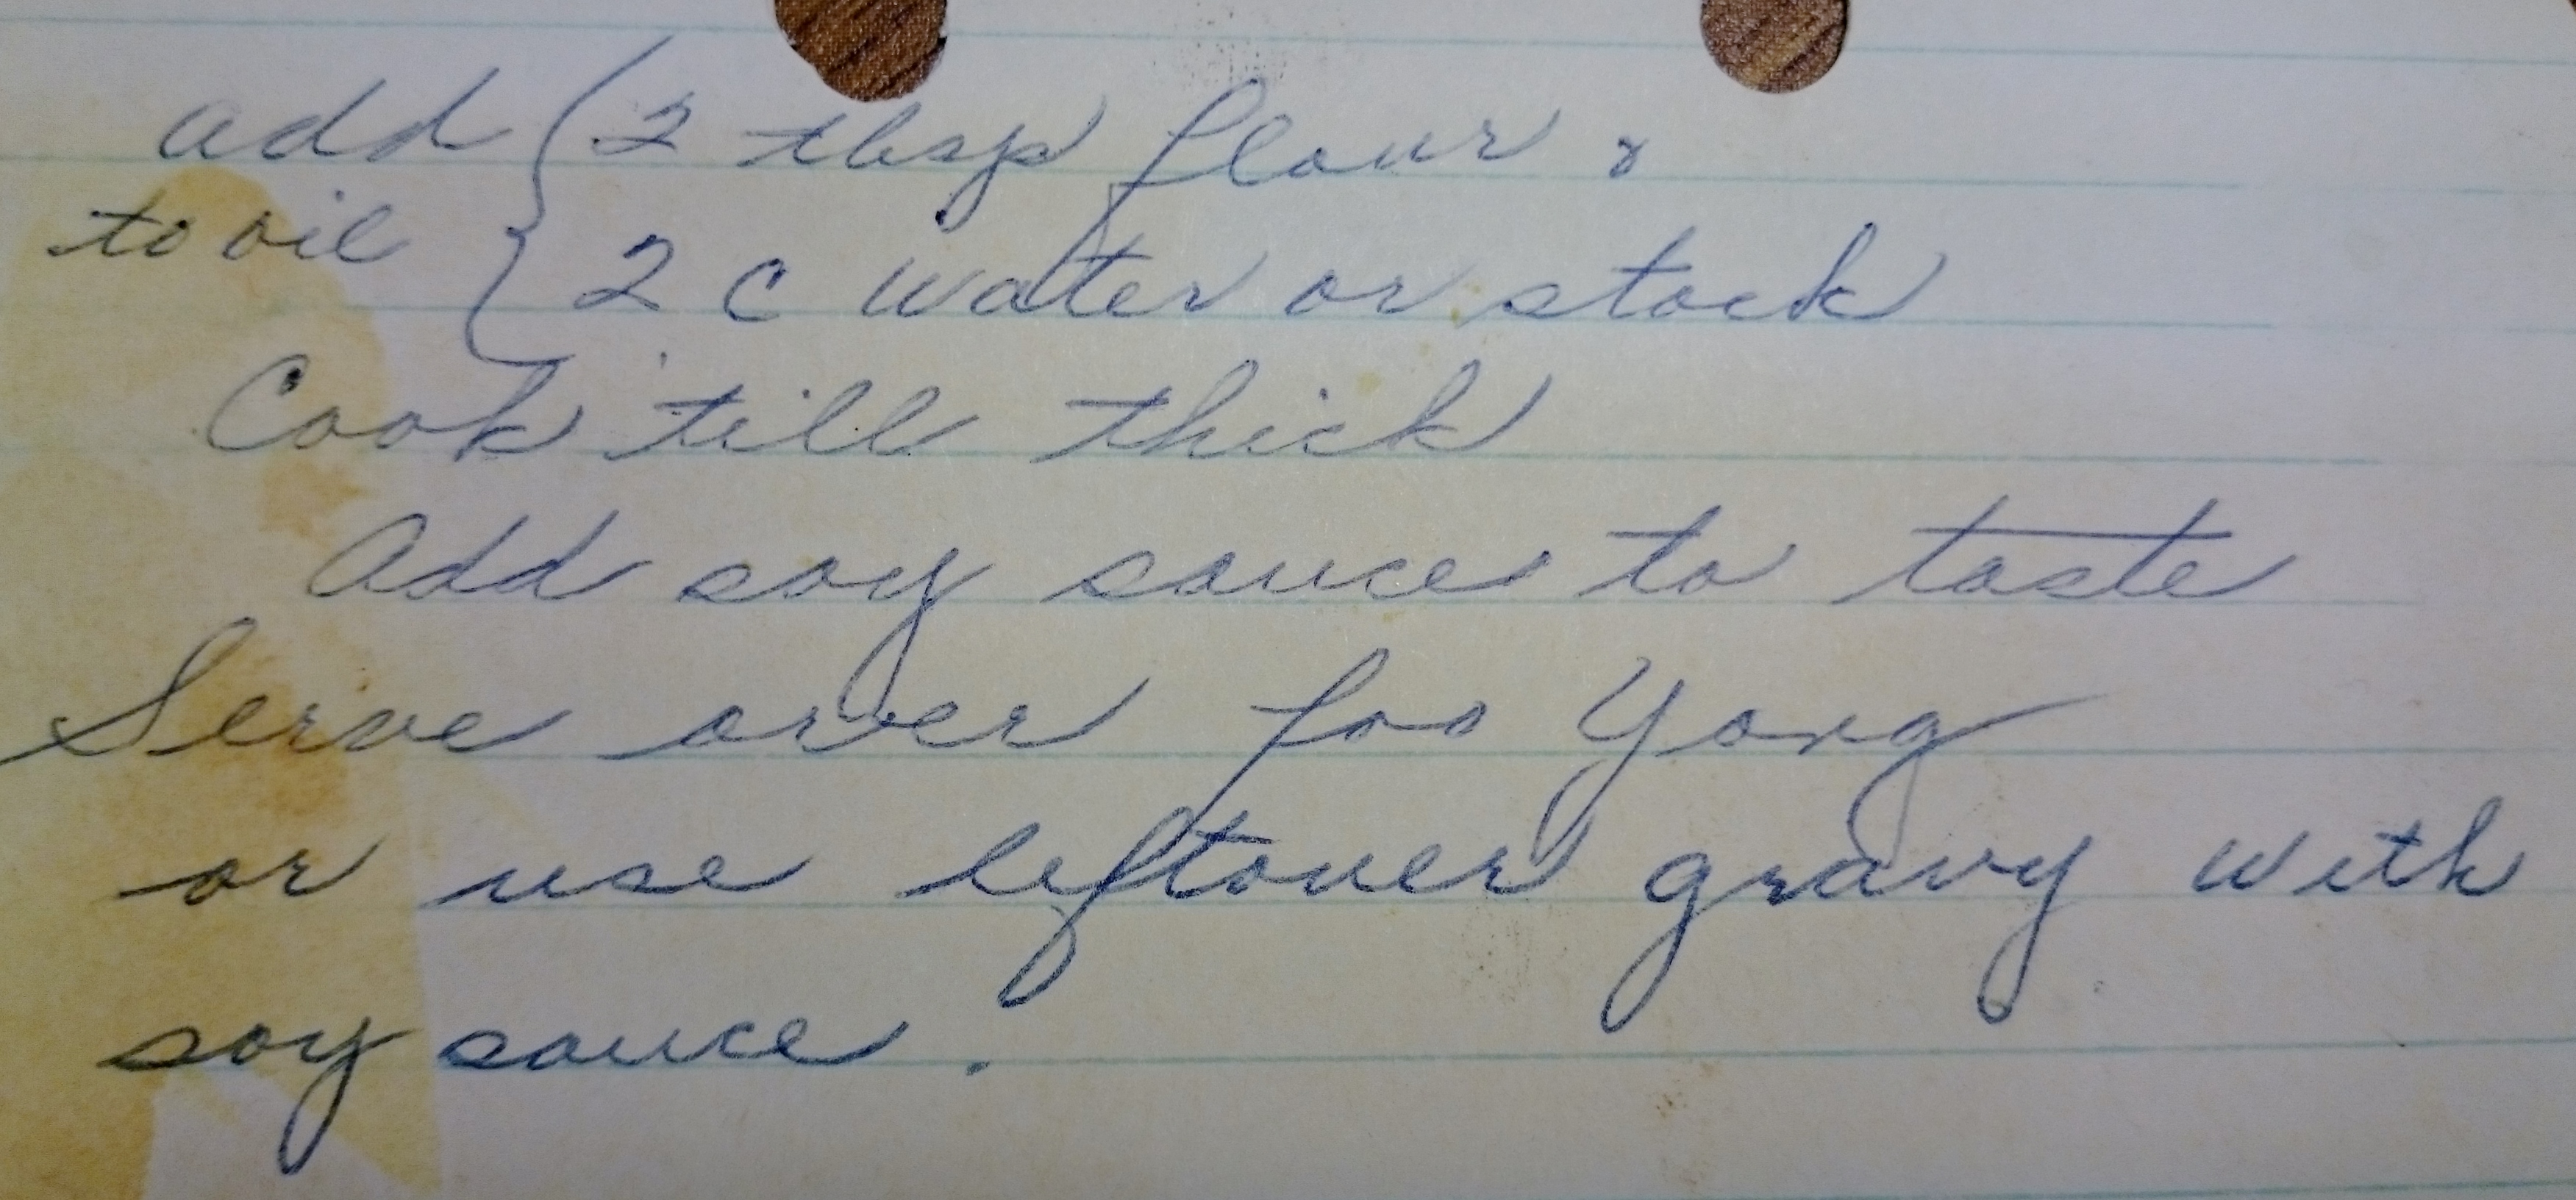 add { 2 tbsp flour &
to oil { 2 c water or stock
Cook till thick
Add soy sauce to taste
Serve over foo Yong
or use leftover gravy with
soy sauce.